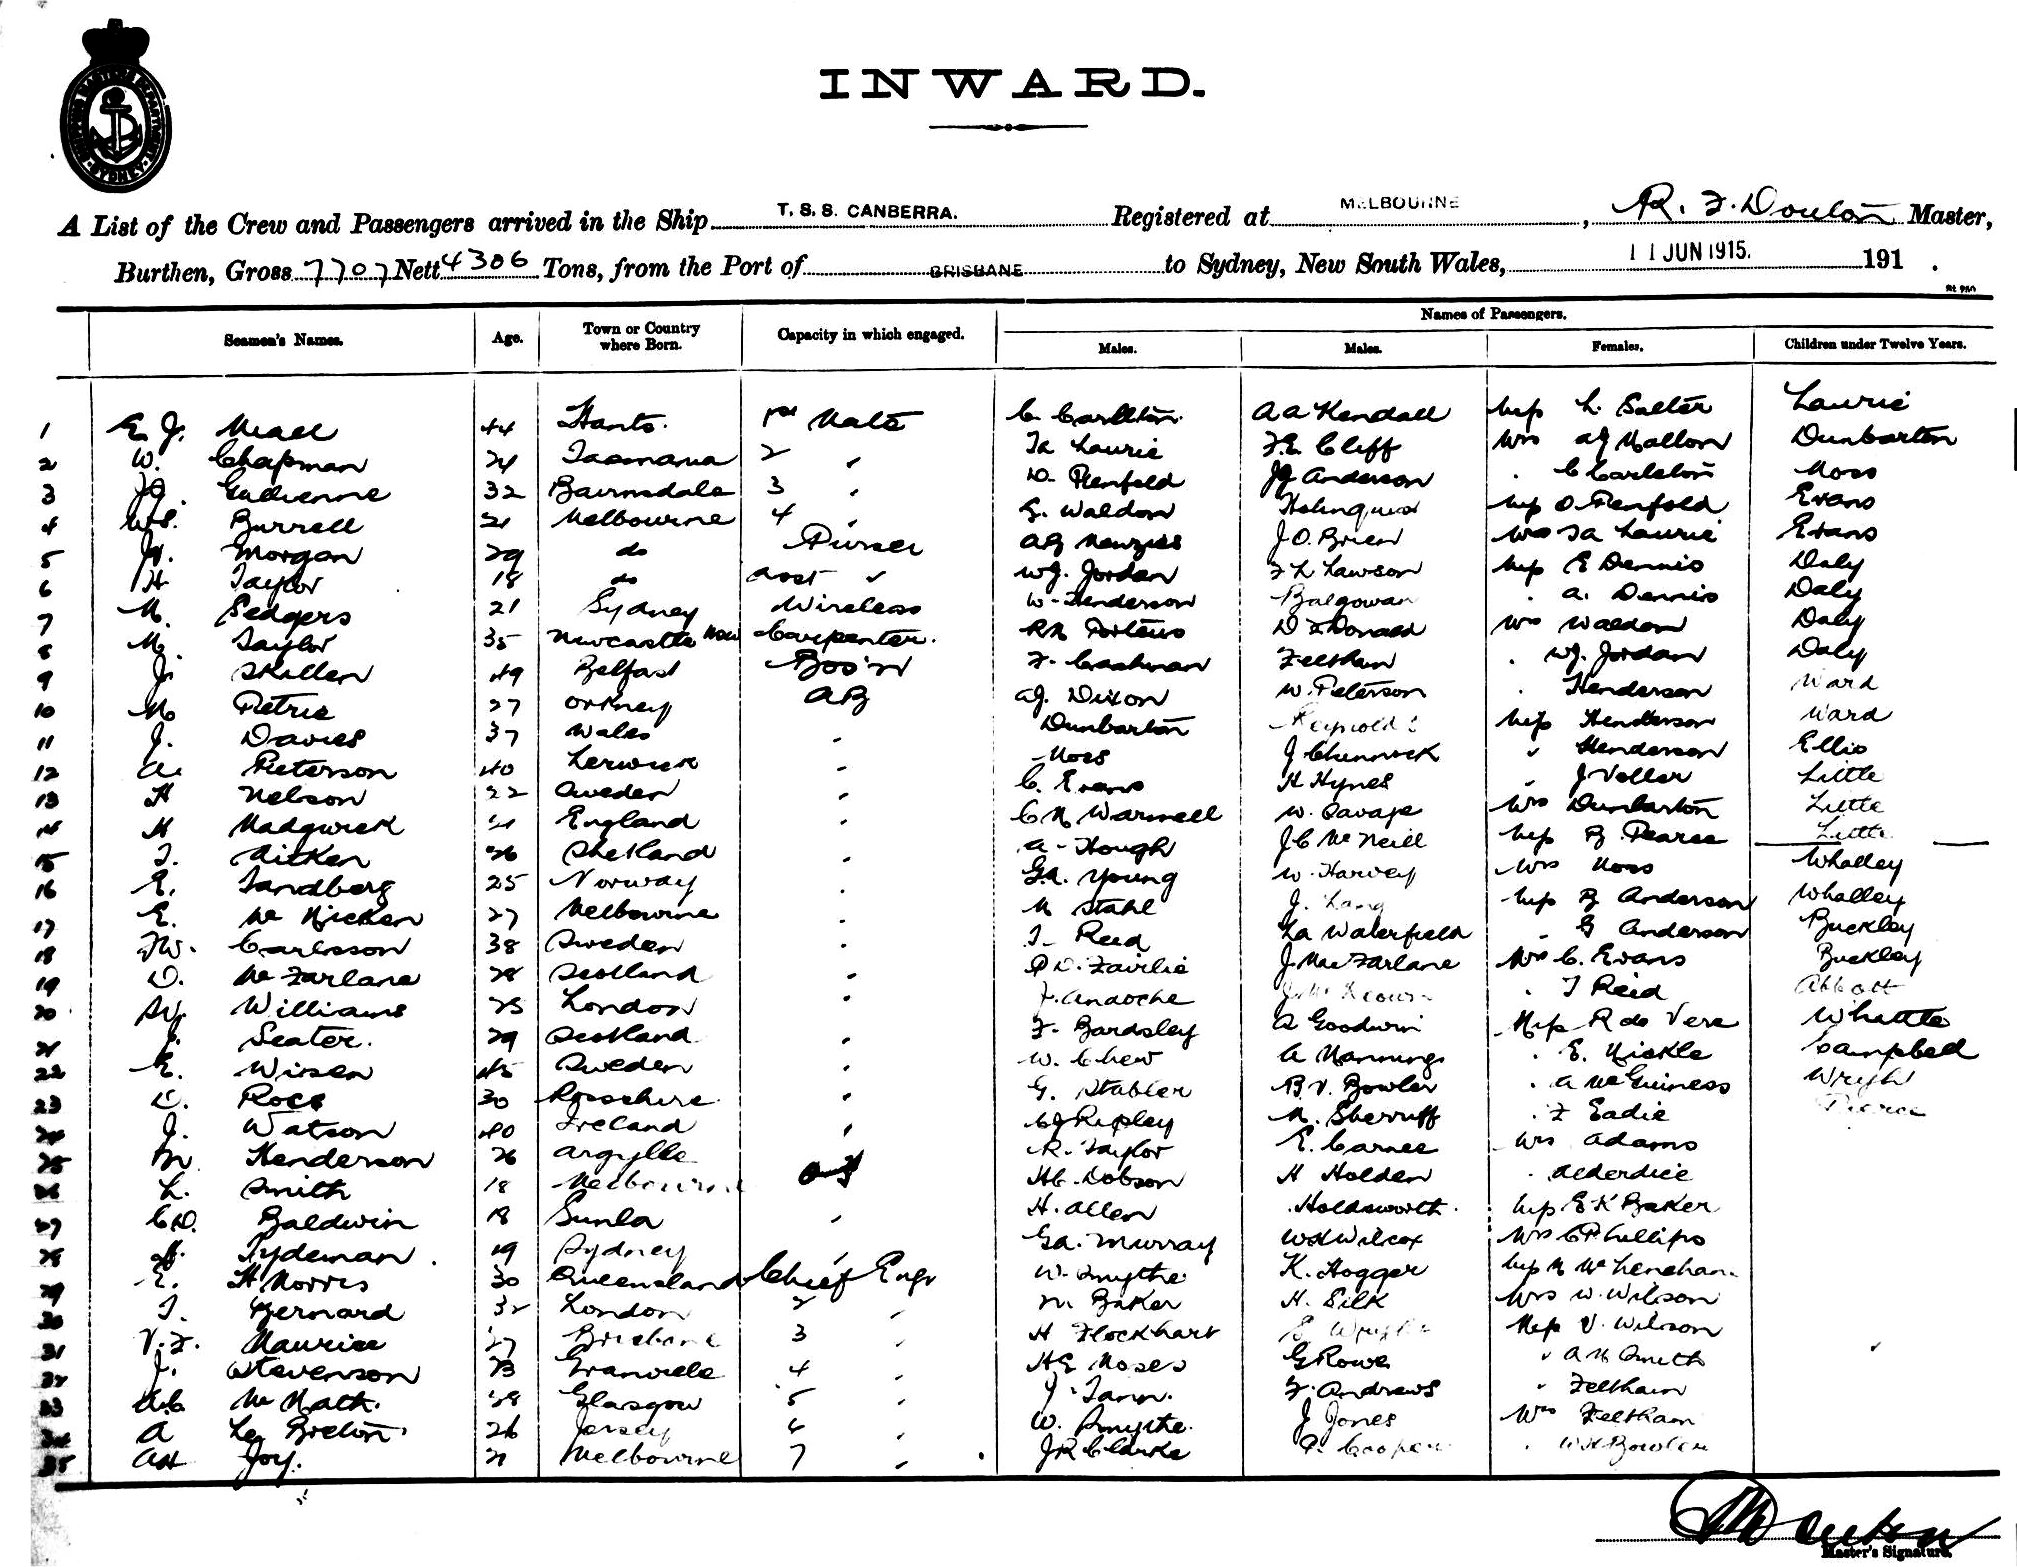 INWARD.
A List of the Crew and Passengers arrived in the Ship T. S. S. CANBERRA. Registered at MELBOURNE, Master,
Burthen, Gross 7707 Nett 4306 Tons, from the Port of BRISBANE to Sydney, New South Wales, 11 JUN 1915. 191 .
Seamen's Names. Age. Town or Country where Born. Capacity in which engaged. Names of Passengers.
Males. Males. Females. Children under Twelve Years.
1 E J. 44 Hants. 1st Mate C. Carllton. A A Kendall Miss L. Salter Laurie
2 W. Chapman 24 Tasmania 2 " Ia Laurie F.E. Cliff Mrs AJ Mallon Dunbarton
3 JG. 32 Bairnsdale 3 " D. Penfold JG Anderson " C Carleton Moss
4 Burrell 21 Melbourne 4 " G. Waldon Miss O Penfold Evans
5 Morgan 29 do Purser Menzies J O. Brien Mrs Ia Laurie Evans
6 H Taylor 18 do Asst " WJ. Jordan F L Lawson Miss E Dennis Daly
7 M. Sedgers 21 Sydney Wireless W. Henderson Balgowan " A. Dennis Daly
8 M. Taylor 35 Newcastle NSW Carpenter. Porteus D F Donald Mrs Waldon Daly
9 J. Skillen 49 Belfast Bos'n F. Cashman Feltham " WJ. Jordan Daly
10 M Petrie 27 Orkney AB AJ. Dixon W. Peterson " Henderson Ward
11 J. Davies 37 Wales " Dunbarton Reynolds Miss Henderson Ward
12 A. Peterson 40 Lerwick " Moss J Chinnock " Henderson Ellis
13 H Nelson 22 Sweden " C. Evans H Hynes " J Voller Little
14 H Madgwick 21 England " C M Warnell W. Savage Mrs Dunbarton Little
15 J. Aitken 26 Shetland " A. Hough J C McNeill Miss B Pearce Little
16 E. Sandberg 25 Norway " GA. Young W. Harvey Mrs Moss Whalley
17 E. Mc Micken 27 Melbourne " M Stahl J. Lang Miss B Anderson Whalley
18 JW. Carlsson 38 Sweden " J. Reid La Waterfield " G Anderson Buckley
19 D. Mc Farlane 28 Scotland " P D. Fairlie J. MacFarlane Mrs C. Evans Buckley
20 Williams 25 London " J. Andoche " J Reid Abbott
21 J. Seater. 29 Scotland " F. Bardsley A Goodwin Miss R de Vere Whittle
22 E. Wisen 45 Sweden " W. Chew A Mannings " E. Mickle Campbell
23 D. Ross 30 Rosshire " G. Stabler B.V. Bowler " A McGuiness Wright
24 J. Watson 40 Ireland " CJ Ripley M. Sherriff " F Eadie Pierce
25 Henderson 26 Argylle R. Taylor E. Carnee Mrs Adams
26 L. Smith 18 Melbourne OS HC. Dobson H Holden " Alderdice
27 CD. Baldwin 18 " H. Allen Holdsworth. Miss E K Baker
28 Tydeman. 19 Sydney " GA. Murray WH Wilcox Mrs C Phillips
29 E. H Morris 30 Queensland Chief Engr W. Smythe K. Hogger Miss M McLenehan.
30 J. Bernard 32 London 2 " M. Baker H. Silk Mrs W. Wilson
31 V. F. Maurice 27 Brisbane 3 " H Flockhart E Wright Miss V. Wilson
32 J. Stevenson 23 Granville 4 " HE Moses G Rowe " A M Smith
33 AC Mc Math. 28 Glasgow 5 " J. Tann. F. Andrews " Feltham
34 A Le Breton. 26 Jersey 6 " W. Smythe. J Jones Mrs Feltham
35 AH Joy. 21 Melbourne 7 " JR Clarke P. Cooper " WH Bowden
Master's Signature.